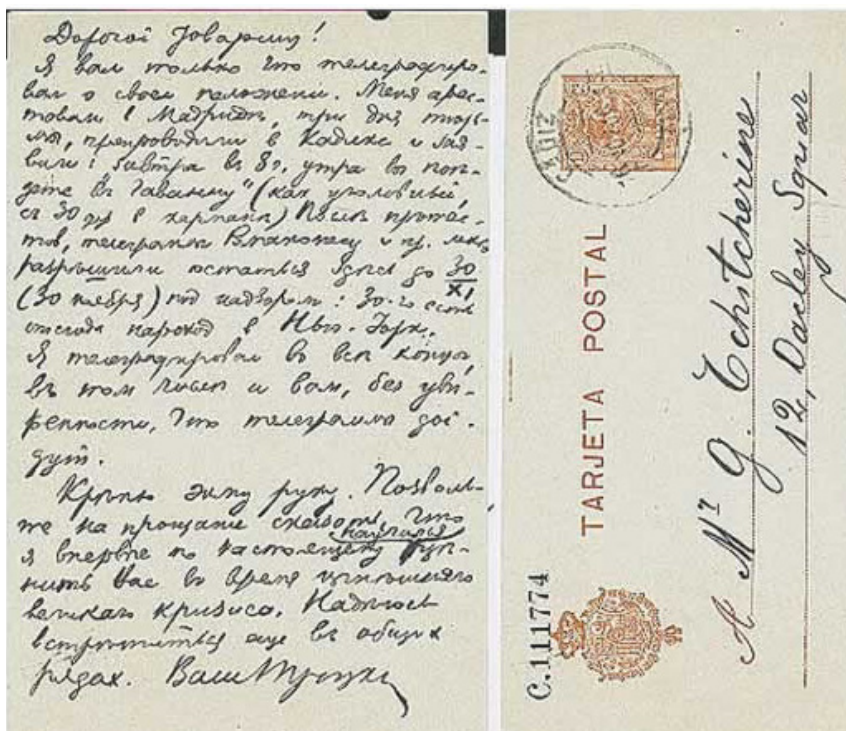 Дорогой Товарищ!
Я вам только что телеграфиро-
вал о своем положении. Меня арес-
товали в Мадриде, три дня тюрь-
мы, препроводили в Кадикс и зая-
вили: "Завтра в 8 ч. утра вы пое-
дете в Гаванну" (как уголовный,
с 30 в кармане) После протес-
тов, телеграммы и пр. мне
разрешили остаться здесь до 30/XI
(30 ноября) под надзором: 30-го есть
отсюда пароход в Нью-Йорк.
Я телеграфировал во все концы,
в том числе и вам, без уве-
ренности, что телеграмма дой-
дут.
Крепко жму руку. Позволь-
те на прощанье сказать, что
я впервые по настоящему научился це-
нить Вас во время нынешнего
великаго кризиса. Надеюсь
встретиться еще в общих
рядах. Ваш Троцкий
CADIZ
TARJETA POSTAL
C.111774
A Mr G. Tchitcherine
12, Dacley Squar